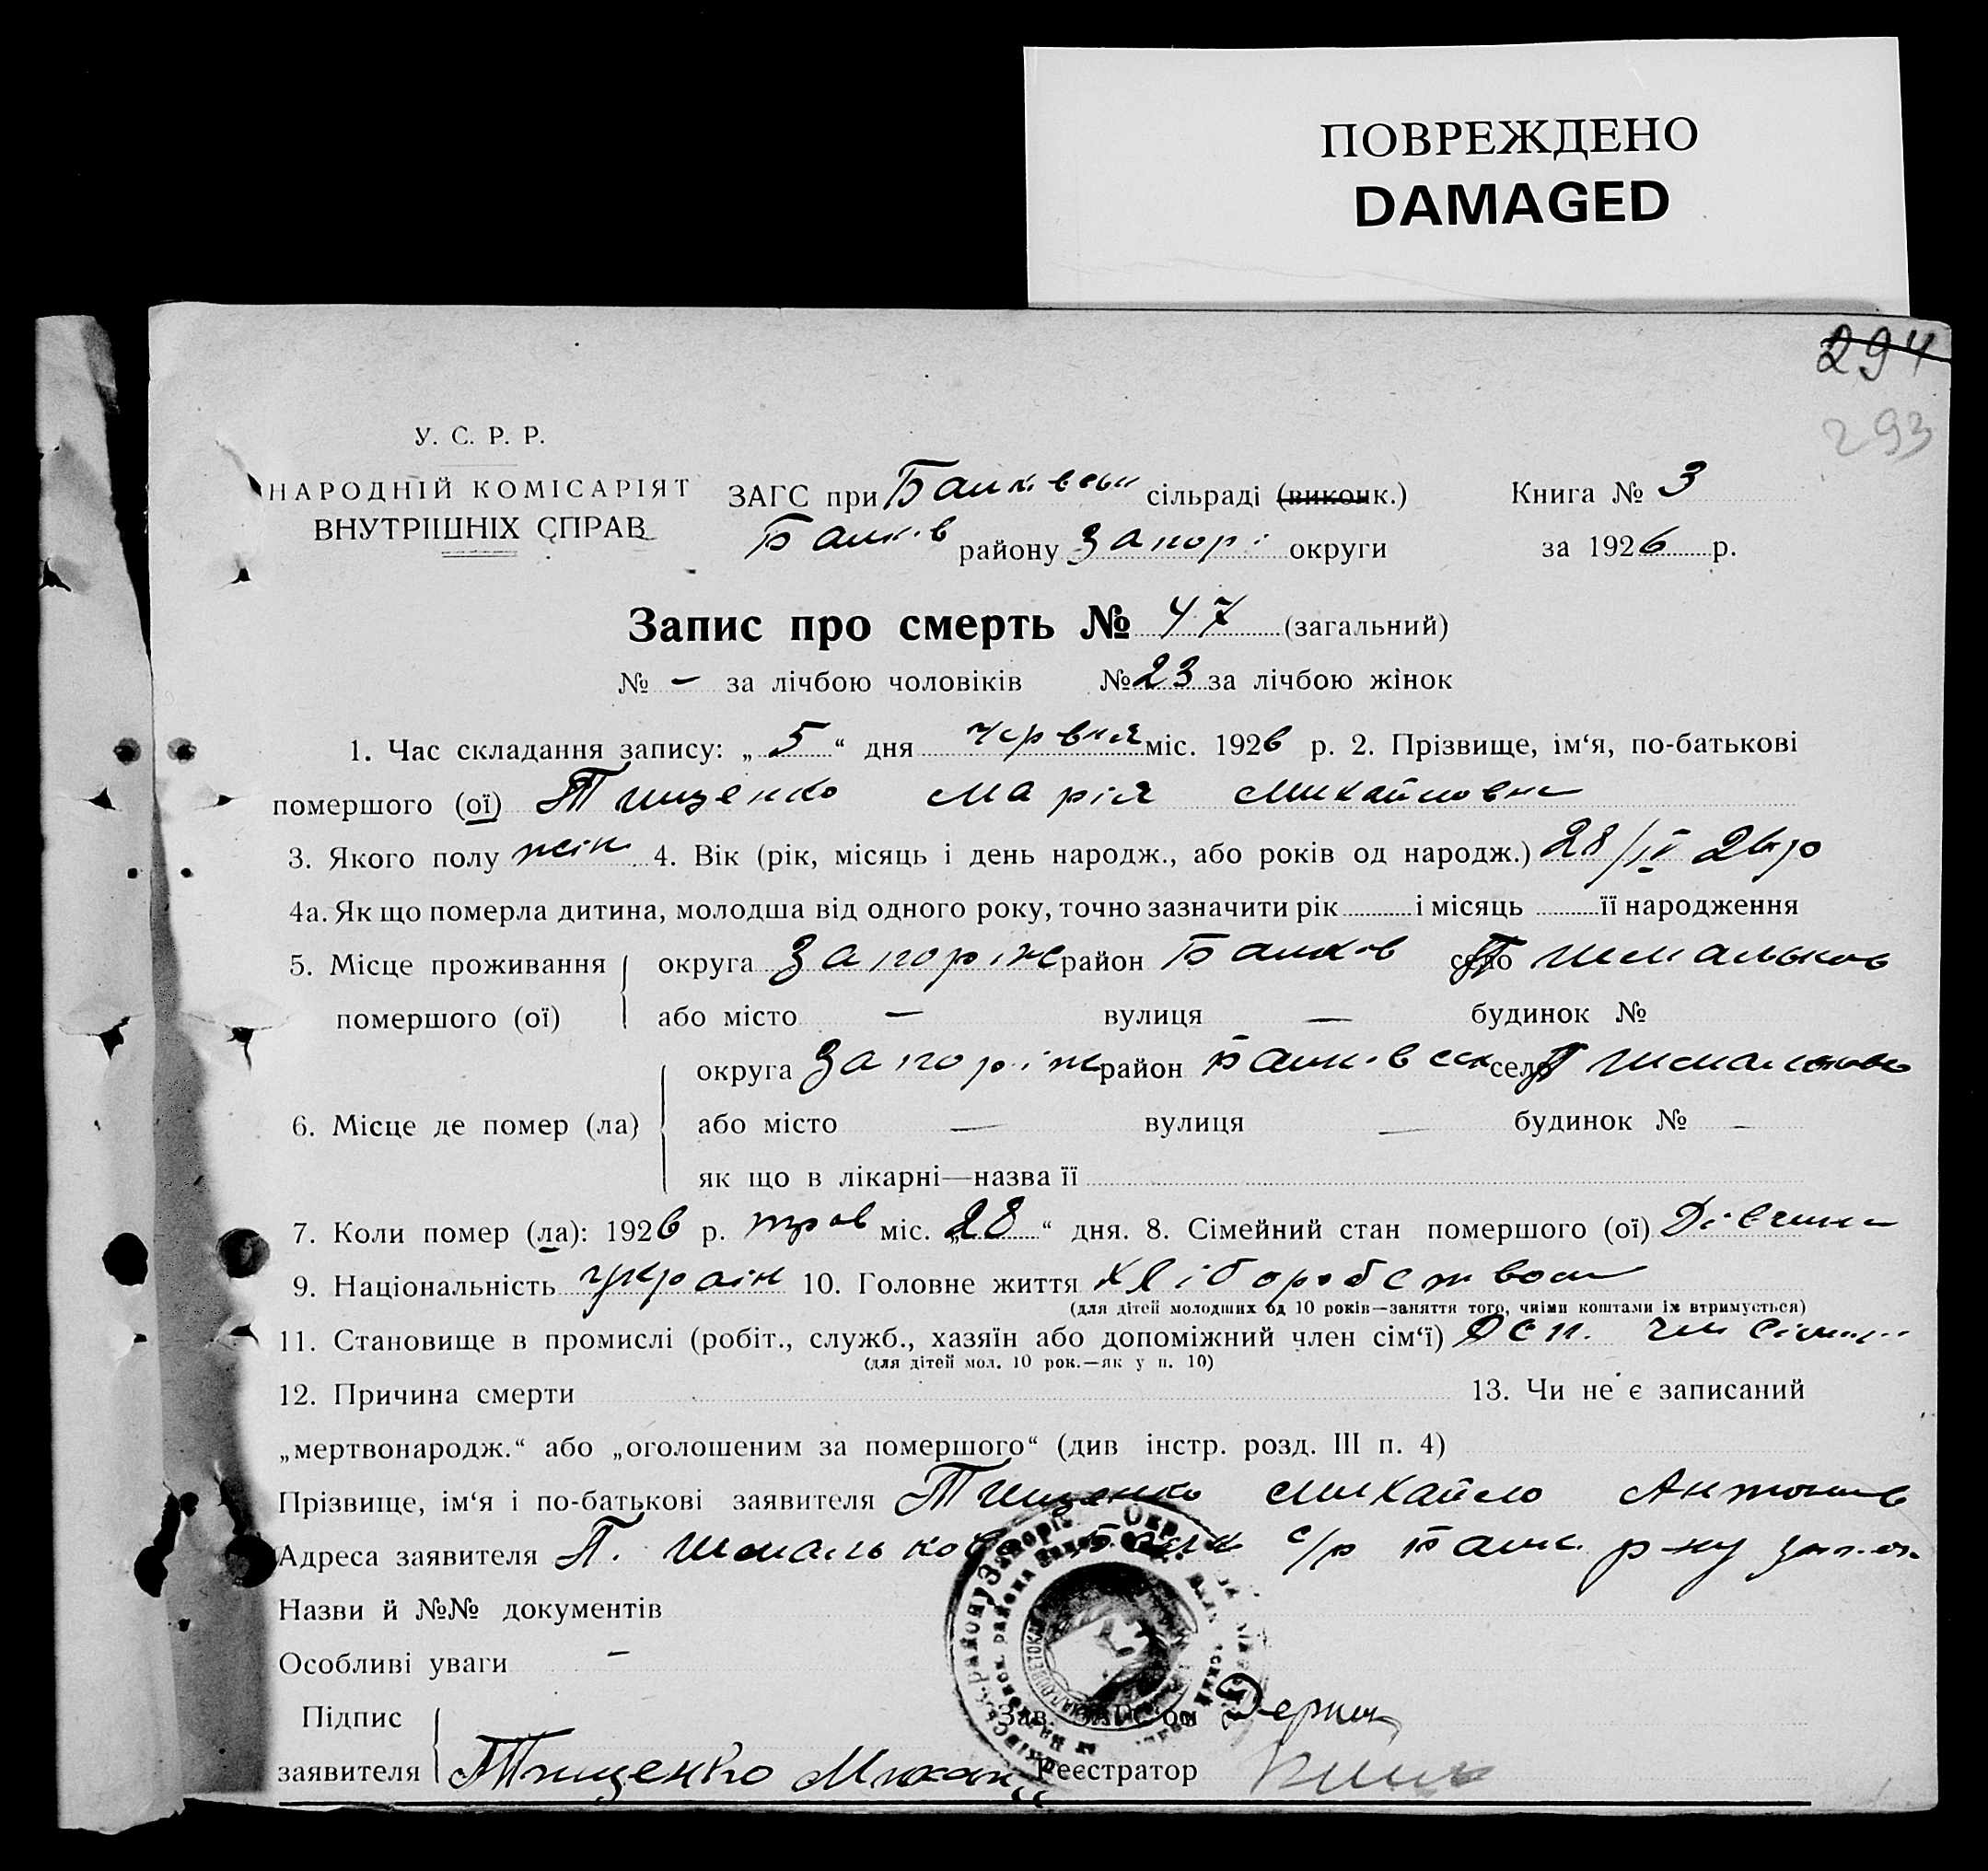 ПОВРЕЖДЕНО
DAMAGED
294
293
У. С. Р. Р.
НАРОДНІЙ КОМІСАРІЯТ
ВНУТРІШНІХ СПРАВ
ЗАГС при сільраді (виконк.)
району Запорі округи
Книга № 3
за 1926 р.
Запис про смерть № 47 (загальний)
№ – за лічбою чоловіків №23 за лічбою жінок
1. Час складання запису: „ 5 “ дня червня міс. 1926 р. 2. Прізвище, ім‘я, по-батькові
помершого (ої) Тищенко Марія Михайловна
3. Якого полу жін 4. Вік (рік, місяць і день народж., або років од народж.) 28/IV 26 р
4а. Як що померла дитина, молодша від одного року, точно зазначити рік і місяць її народження
5. Місце проживання округа Запоріж район село
помершого (ої) або місто — вулиця — будинок №
округа Запоріж район село
6. Місце де помер (ла) або місто — вулиця — будинок № –
як що в лікарні—назва її
7. Коли помер (ла): 1926 р. трав міс. „28“ дня. 8. Сімейний стан помершого (ої) Дівчина
9. Національність україн 10. Головне життя хліборобством
(для дітей молодших од 10 років—заняття того, чиїми коштами їх втримується)
11. Становище в промислі (робіт., служб., хазяїн або допоміжний член сім‘ї)
(для дітей мол. 10 рок.—як у п. 10)
12. Причина смерти 13. Чи не є записаний
„мертвонародж.“ або „оголошеним за помершого“ (див інстр. розд. III п. 4)
Прізвище, ім‘я і по-батькові заявителя Тищенко Михайло Антонів
Адреса заявителя с/р р-ну
Назви й №№ документів
Особливі уваги –
Підпис
Зав. ЗАГС‘ом
заявителя Тищенко
Реєстратор